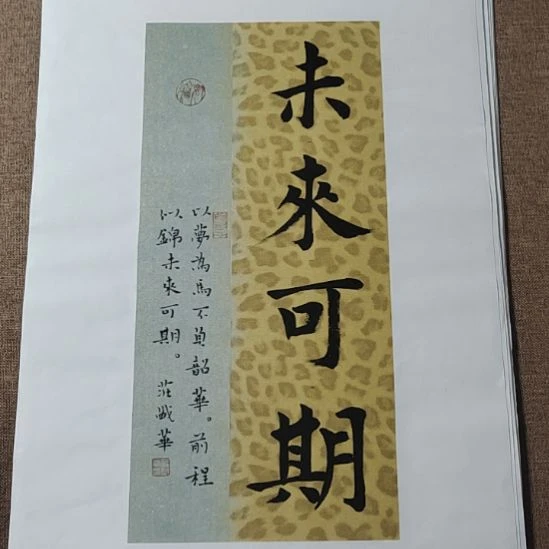 未來可期
以夢為馬不負韶華。前程
似錦未來可期。 莊
華